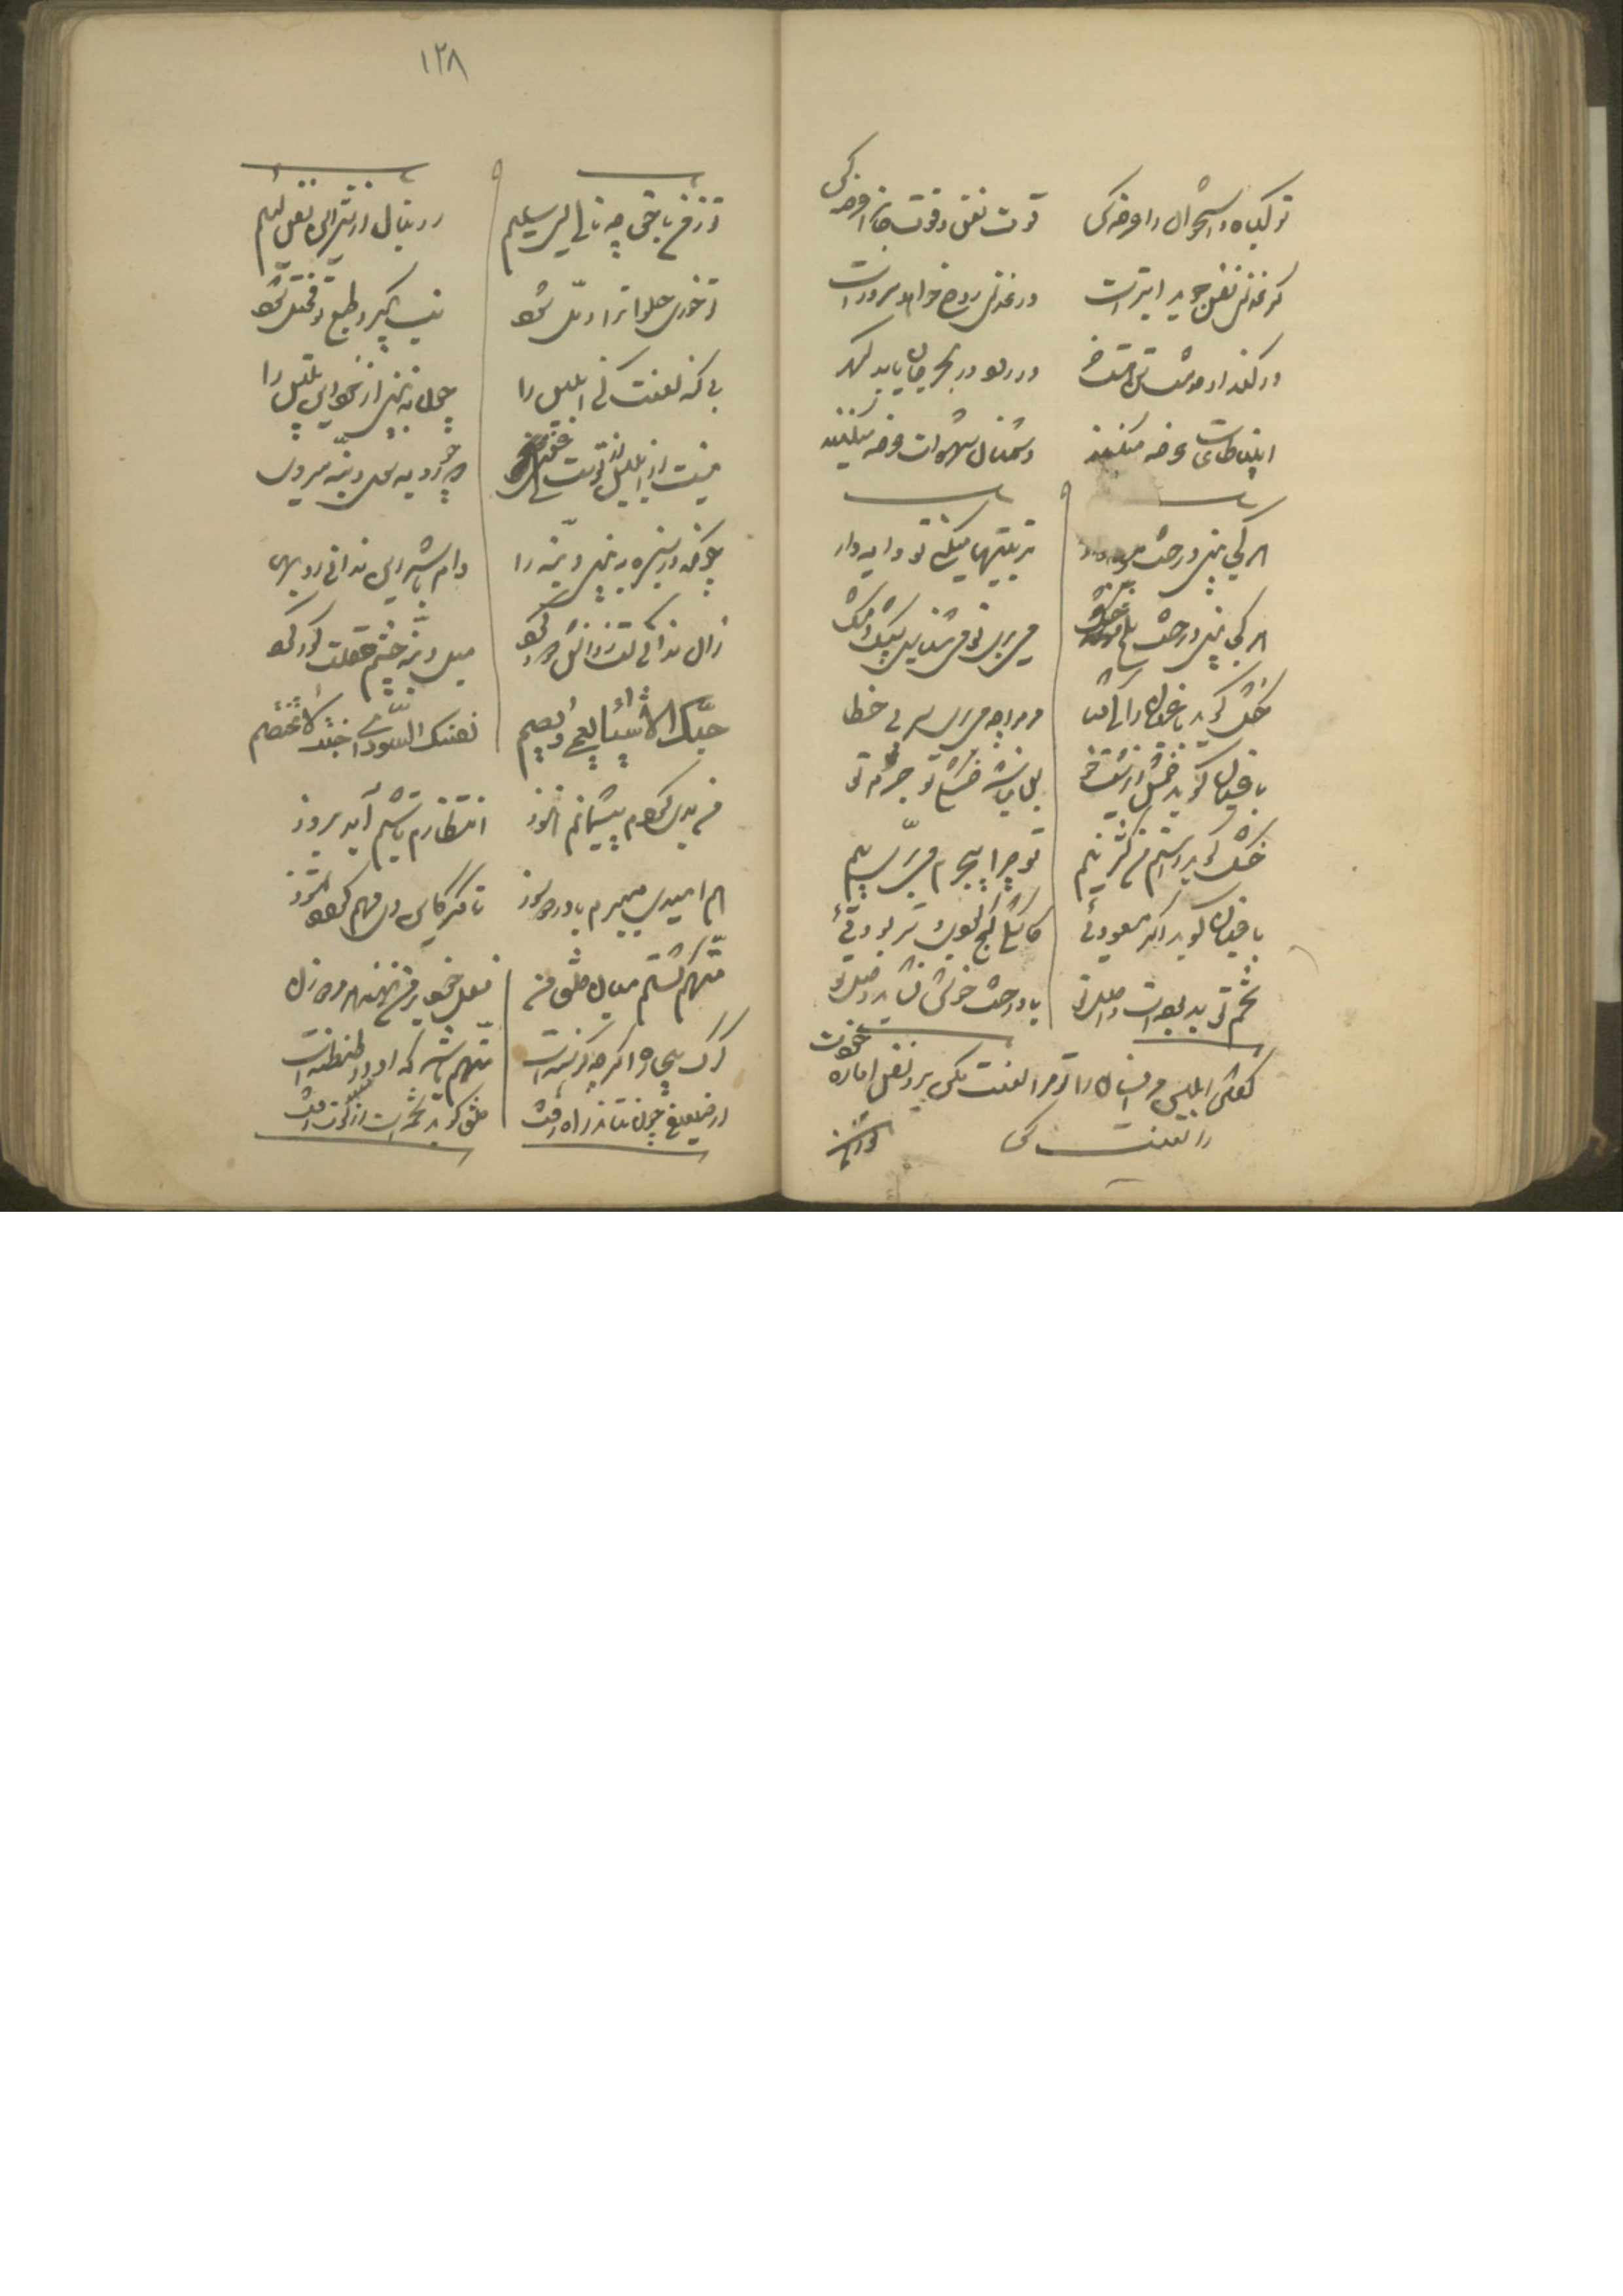 تو گیاه و استخوان را عرضه کن قوت نفس و قوت جان را عرضه کن
گر غذای نفس جوید ابترست ور غذای روح خواهد سرورست
ور کند او خدمت تن هست خر ور رود در بحر جان یابد گهر
انبیا طاعات عرضه میکنند دشمنان شهوات عرضه میکنند
هر کجا بینی درخت میوه دار تربیتها میکنی تو دایه وار
هر کجا بینی درخت تلخ و خشک میبری تو می شناسی پشک و مشک
خشک گوید باغبان را کای فتا مر مرا چه میبری سر بی خطا
باغبان گوید خمش ای زشت خو بس نباشد خشکی تو جرم تو
خشک گوید راستم من کژ نیم تو چرا بیجرم میبری پیم
باغبان گوید اگر مسعودیی کاشکی کج بودیی تر بودیی
تخم تو بد بوده است و اصل تو با درخت خوش نباشد وصل تو
گفتن ابلیس مر انسان را تو مرا لعنت مکن برو نفس اماره خودت
را لعنت کن
تو ز من
١٢٨
تو ز من با حق چه نالی ای سلیم رو بنال از شر این نفس لئیم
تو خوری حلوا ترا دمل شود تب بگیرد طبع تو مختل شود
بی گنه لعنت کنی ابلیس را چون نه بینی از خود این تلبیس را
نیست از ابلیس از تست ای غوی چو روبه سوی دنبه میروی
چونکه در سبزه ببینی دنبه را دام باشد این ندانی روبها
زان ندانی کت ز دانش دور کرد میل دنبه چشم عقلت کور کرد
حبّک الاشیاء یعمی و یصم نفسک السوداء جنت لا تختصم
من بدی کردم پشیمانم هنوز انتظارم تا شبم آید بروز
هم امیدی میبرم با درد و سوز تا مگر کاین دی مهم گردد تموز
متّهم گشتم میان خلق من فعل خود بر من نهد هر مرد و زن
گرگ بیچاره اگر چه گرسنه است متّهم باشد که او در طنطنه است
از ضعیفی چون نتاند راه رفت خلق گوید تخمه است از لوت زفت